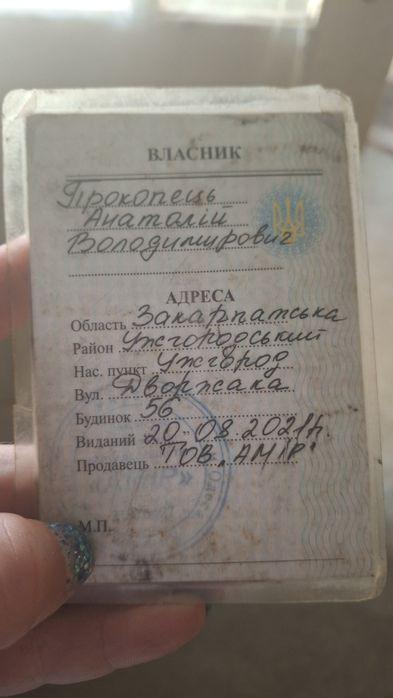 ВЛАСНИК
Прокопець
Анаталій
Володимирович
АДРЕСА
Область Закарпатська
Район Ужгородський
Нас. пункт Ужгород
Вул. Дворжака
Будинок 56
Виданий 20.08.2021р.
Продавець ТОВ "АМІР"
М.П.